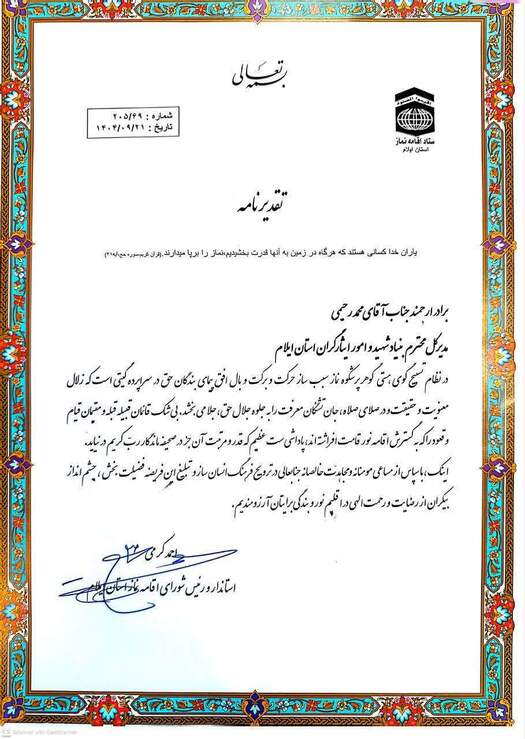 بسمه تعالی
اقیموا الصلوة
ستاد اقامه نماز
استان ایلام
شماره : ۲۰۵/۴۹
تاریخ : ۱۴۰۴/۰۹/۲۱
تقدیرنامه
یاران خدا کسانی هستند که هرگاه در زمین به آنها قدرت بخشیدیم،نماز را برپا میدارند.(قرآن کریم،سوره حج،آیه۴۱)
برادر ارجمند جناب آقای محمد رحیمی
مدیرکل محترم بنیاد شهید و امور ایثارگران استان ایلام
در نظام تسبیح گوی هستی گوهر پرشکوه نماز سبب ساز حرکت و برکت و بال افق پیمای بندگان حق در سراپرده گیتی است که زلال
معنویت و حقیقت و در صلای صلاه، جان تشنگان معرفت را به جلوه جلال حق، جلا می بخشد. بی شک قائمان قبیله قبله و مقیمان قیام
و قعود را که به گسترش اقامه نور قامت افراشته اند، پاداشی ست عظیم که قدر و مرتبت آن جز در صحیفه ماندگار رب کریم در نیاید.
اینک، با سپاس از مساعی مومنانه و مجاهدت خالصانه جنابعالی در ترویج فرهنگ انسان ساز و تبلیغ این فریضه فضیلت بخش، چشم انداز
بیکران از رضایت و رحمت الهی در اقلیم نور و بندگی برایتان آرزومندیم.
احمد کرمی
استاندار و رئیس شورای اقامه نماز استان ایلام
Scanned with CamScanner